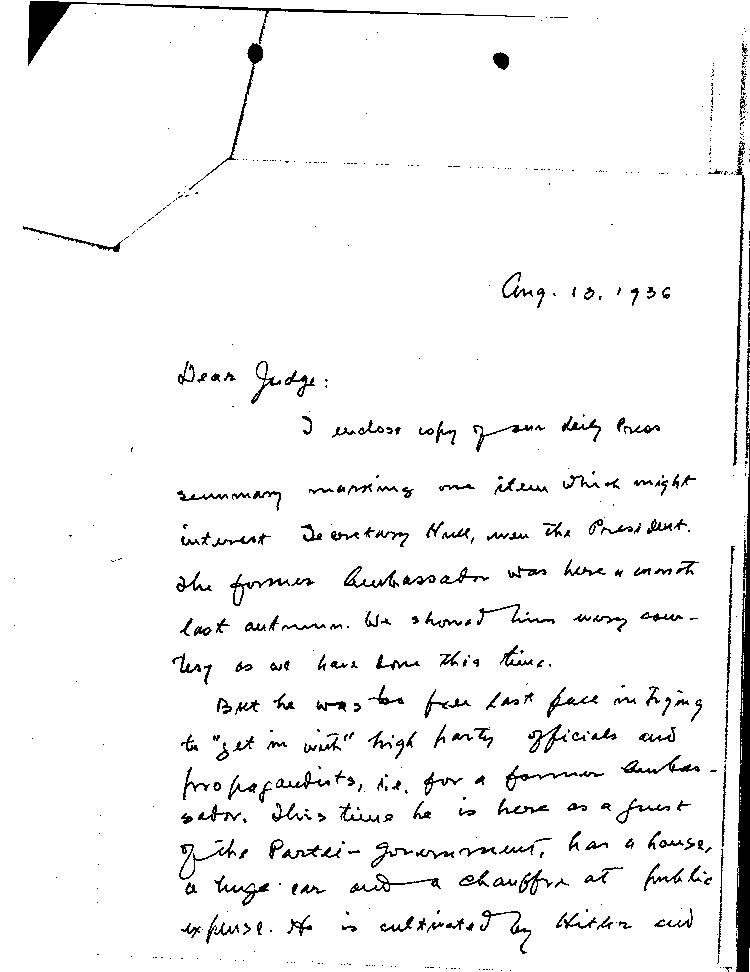 Aug. 13, 1936
Dear Judge:
I enclose copy of our daily Press
summary marking one item which might
interest Secretary Hull, even the President.
The former Ambassador was here a month
last autumn. We showed him every cour-
tesy as we have done this time.
But he was too free last fall in trying
to "get in with" high party officials and
propagandists, i.e. for a former Ambas-
sador. This time he is here as a guest
of the Partei-Government, has a house,
a huge car and a chauffer at public
expense. He is cultivated by Hitler and